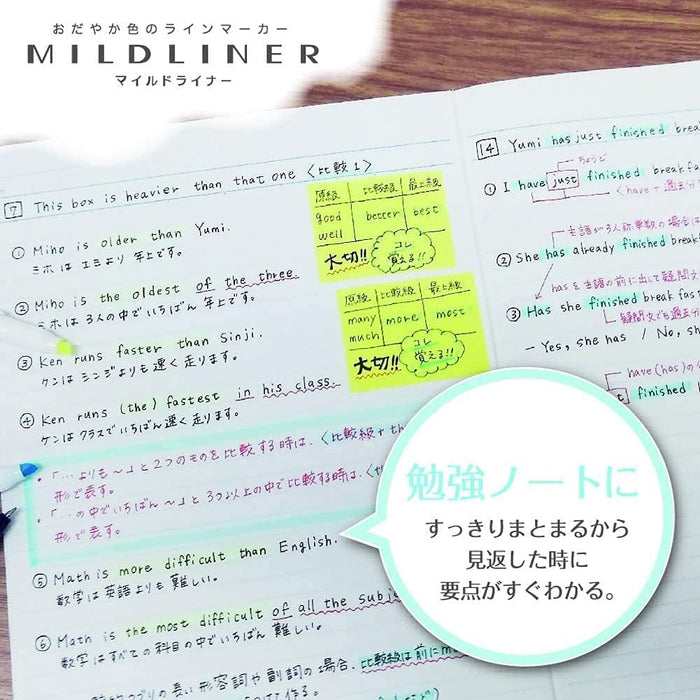 おだやか色のラインマーカー
MILDLINER
マイルドライナー
7 This box is heavier than that one 〈比較1〉
① Miho is older than Yumi.
ミホは エミより 年上です。
② Miho is the oldest of the three.
ミホは 3人の中でいちばん 年上です。
③ Ken runs faster than Sinji.
ケンはシンジよりも速く走ります。
④ Ken runs (the) fastest in his class.
ケンはクラスでいちばん速く走ります。
・「…よりも〜」と2つのものを比較する時は、〈比較級+th
形で表す。
・「…の中でいちばん〜」と3つ以上の中で比較する時は、〈th
形で表す。
⑤ Math is more difficult than English.
数学は英語よりも難しい。
⑥ Math is the most difficult of all the subje
数学はすべての科目の中でいちばん難しい。
つづりの長い形容詞や副詞の場合、比較級は前にm
原級 比較級 最上級
good better best
well
大切!! コレ
覚える!!
原級 比較級 最上級
many more most
much
大切!! コレ
覚える!!
14 Yumi has just finished break
ちょうど
① I have just finished breakfa
〈have+過去分
主語が3人称単数の場合は
② She has already finished break
hasを主語の前に出して疑問文
③ Has she finished breakfas
疑問文でも過去分
- Yes, she has / No, s
have(has)の
finished b
勉強ノートに
すっきりまとまるから
見返した時に
要点がすぐわかる。